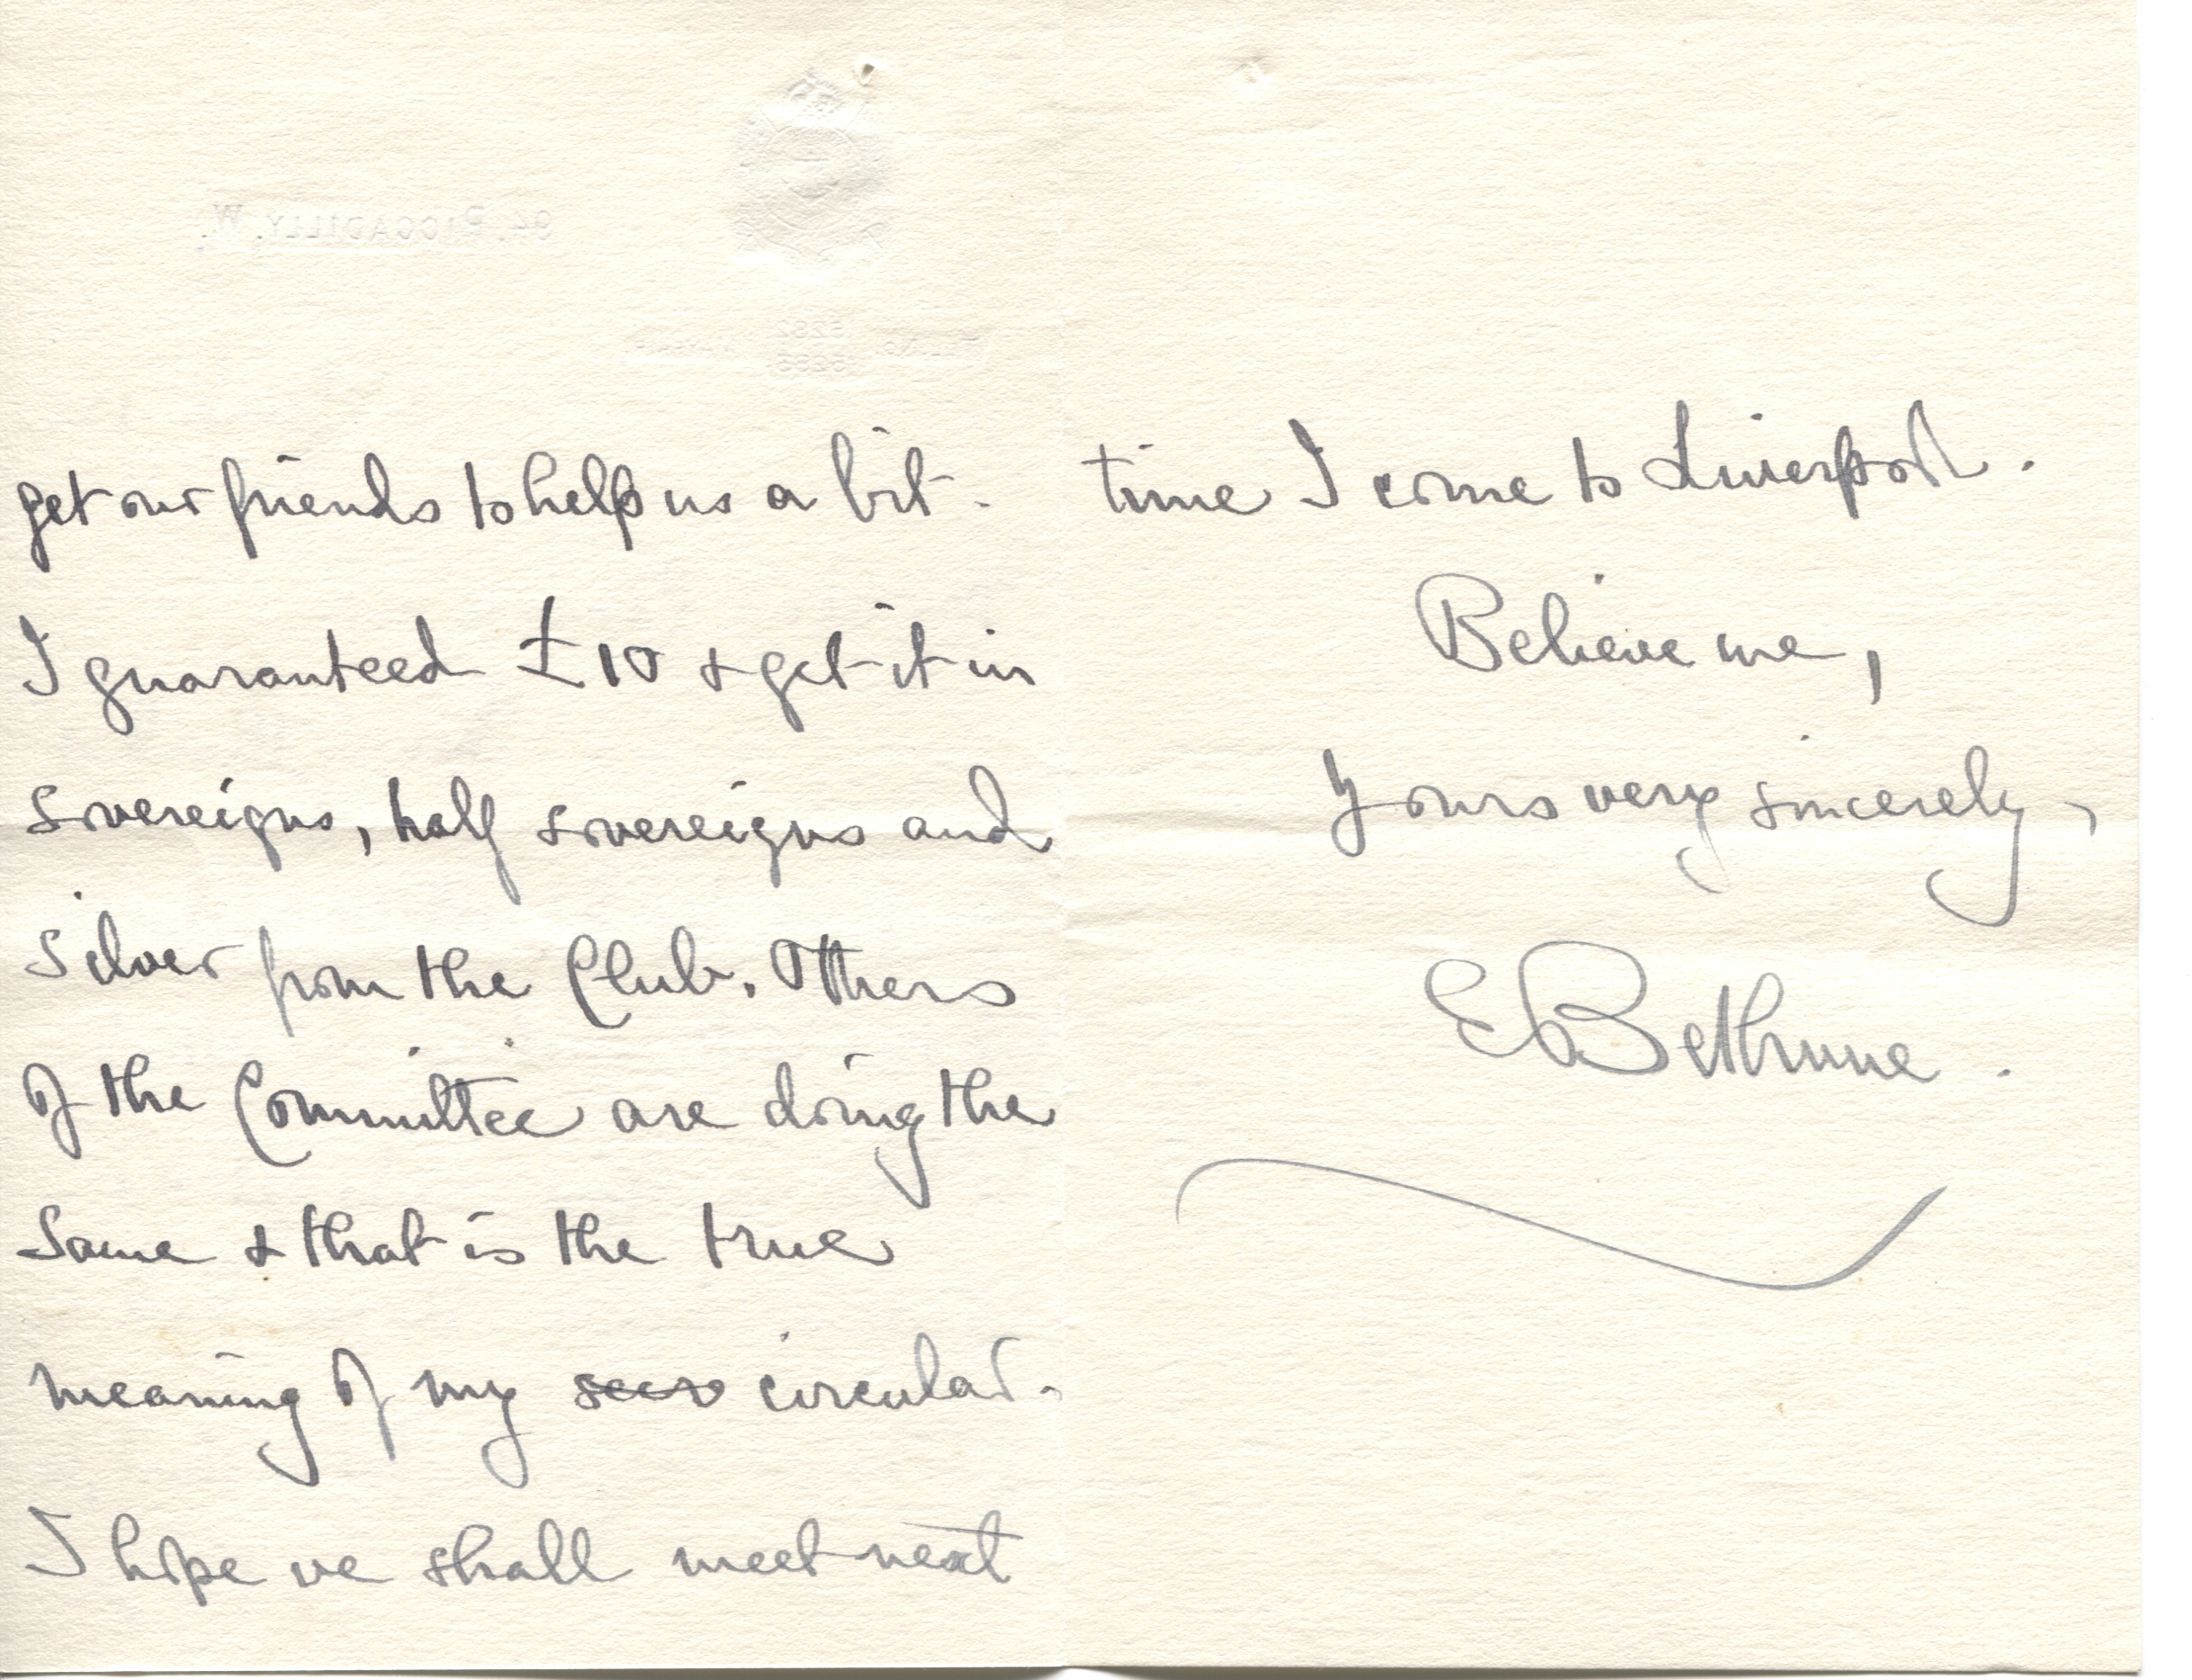 94, PICCADILLY. W.
TEL. NO. MAYFAIR
get our friends to help us a bit.
I guaranteed £10 & get it in
sovereigns, half sovereigns and
silver from the Club. Others
of the Committee are doing the
same & that is the true
meaning of my circular.
I hope we shall meet next
time I come to Liverpool.
Believe me,
Yours very sincerely,
E Bethune.